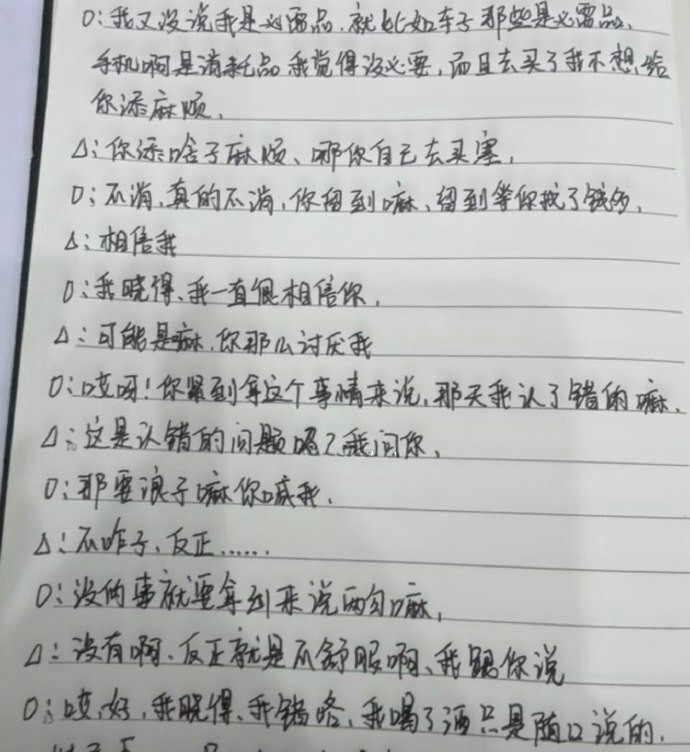 O: 我又没说我是必需品, 就比如车子那些是必需品,
手机啊是消耗品我觉得没必要, 而且去买了我不想给
你添麻烦,
△: 你添啥子麻烦、哪你自己去买塞,
O: 不消, 真的不消, 你留到嘛、留到等你找了钱的,
△: 相信我
O: 我晓得、我一直很相信你,
△: 可能是嘛, 你那么讨厌我
O: 哎呀! 你紧到拿这个事情来说, 那天我认了错的嘛,
△: 这是认错的问题吗? 我问你,
O: 那要浪子嘛你喊我,
△: 不咋子、反正......
O: 没的事就要拿到来说两句嘛,
△: 没有啊、反正就是不舒服啊、我跟你说
O: 哎, 好, 我晓得、我错咯、我喝了酒只是随口说的,